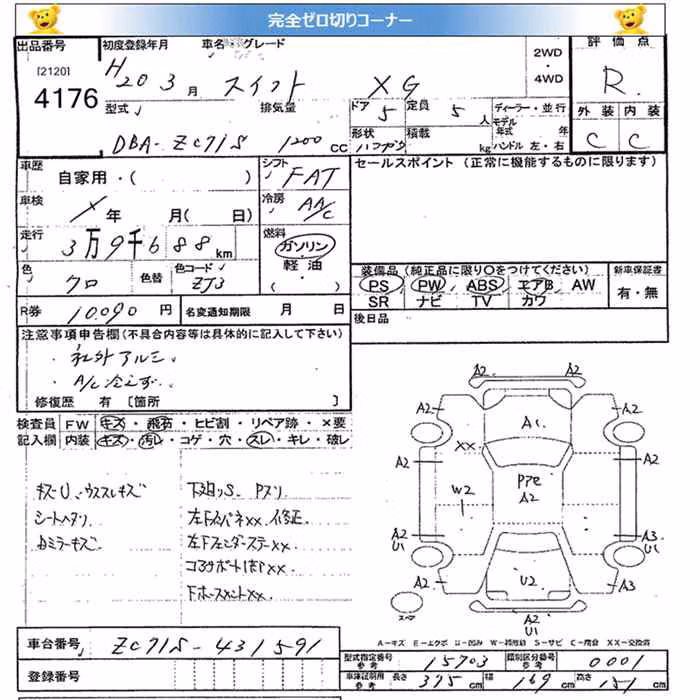 完全ゼロ切りコーナー
出品番号 初度登録年月 車名・グレード 評価点
[2120]
4176
H20 3 月 スイフト XG 2WD・4WD R
型式 排気量 ドア 5 定員 5 人 ディーラー・並行 外装 内装
DBA-ZC71S 1200 cc 形状 積載 kg モデル年式 年 ハンドル 左・右 C C
車歴 自家用・( ) シフト FAT セールスポイント (正常に機能するものに限ります)
車検 年 月( 日) 冷房 AA/C
走行 3万9千688 km 燃料 ガソリン・軽油・( )
装備品 (純正品に限り○をつけてください) 新車保証書
色 クロ 色替 色コード ZJ3
PS PW ABS エアB AW 有・無
SR ナビ TV カワ
R券 10,090 円 名変通知期限 月 日 後日品
注意事項申告欄 (不具合内容等は具体的に記入して下さい)
・社外アルミ
・A/C冷えず
修復歴 有 [箇所 ]
検査員 FW キズ・飛石・ヒビ割・リペア跡・×要
記入欄 内装 キズ・汚レ・コゲ・穴・スレ・キレ・破レ
キズU、ウススレキズ 下廻りS
シートヘタリ
××、修正
××
コアサポート ××
××
A2 A2
A2 A1 A2
A2 XX A2
W2 A2
A2 U1 A3 U1
A2 U2 A3
A2
U1
A-キズ E-エクボ U-凹み W-補修跡 S-サビ C-腐食 XX-交換済
車台番号 ZC71S-431591
登録番号
型式指定番号 参考 15703 類別区分番号 参考 0001
車庫証明用 参考 長さ 375 cm 幅 169 cm 高さ 151 cm